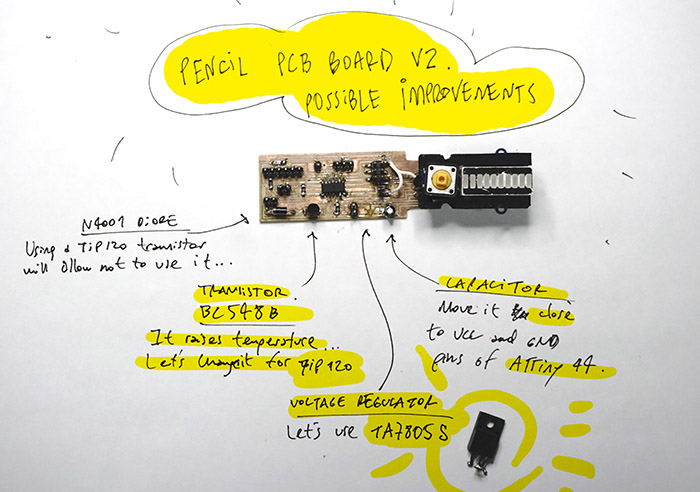 PENCIL PCB BOARD V2.
POSSIBLE IMPROVEMENTS
N4007 DIODE
Using a TiP120 transistor
will allow not to use it...
TRANSISTOR.
BC548B
It raises temperature...
Let's changeit for TiP120
VOLTAGE REGULATOR
Let's use TA7805S
CAPACITOR
Move it close
to VCC and GND
pins of ATTiny 44.